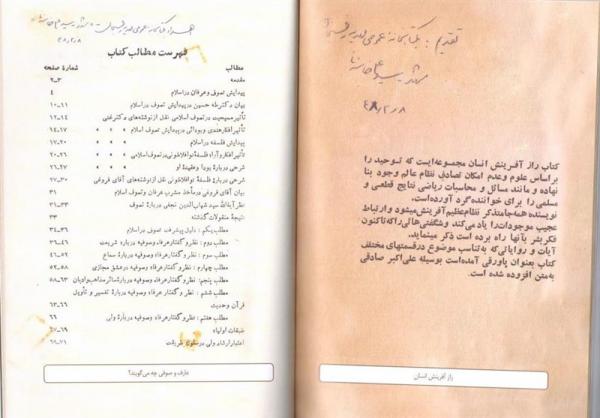 کتابخانه عمومی
۴۸/۲/۸
کتاب راز آفرینش انسان مجموعه‌ایست که توحید را
براساس علوم وعدم امکان تصادفِ نظام عالم وجود بنا
نهاده و مانند مسائل و محاسبات ریاضی نتایج قطعی و
مسلمی را برای خواننده گرد آورده است.
نویسنده همه‌جا متذکر نظام عظیم آفرینش میشود و ارتباط
عجیب موجودات را یاد میکند و شگفتی‌هائی را که تاکنون
فکر بشر بآنها راه برده است ذکر مینماید.
آیات و روایاتی که به تناسب موضوع در قسمتهای مختلف
کتاب بعنوان پاورقی آمده است بوسیله علی‌اکبر صادقی
به متن افزوده شده است.
راز آفرینش انسان
عمومی
۴۸/۲/۸
فهرست مطالب کتاب
مطالب شمارهٔ صفحه
مقدمه ۲-۳
پیدایش تصوف و عرفان در اسلام ۴
بیان دکتر طه حسین در پیدایش تصوف در اسلام ۱۰-۱۱
تأثیر مسیحیت در تصوف اسلامی نقل از نوشته‌های دکتر غنی ۱۲-۱۴
تأثیر افکار هندی و بودائی در پیدایش تصوف اسلام » » » ۱۴-۱۷
پیدایش فلسفه در اسلام » » » ۱۷-۲۰
تأثیر افکار و آراء فلسفهٔ نوافلاطونی در تصوف اسلامی » » » ۲۰-۲۶
شرحی دربارهٔ بودا و عقیدهٔ او » » » ۲۶-۲۷
شرحی دربارهٔ فلسفهٔ نوافلاطونی نقل از نوشته‌های آقای فروغی ۲۷-۳۰
بیان آقای فروغی در مأخذ مشرب عرفان و تصوف ۳۱
نظر آیةالله سید شهاب‌الدین نجفی دربارهٔ تصوف ۳۱
نتیجهٔ منقولات گذشته ۳۳
مطلب یکم : دلیل پیشرفت تصوف در اسلام ۳۴-۳۶
مطلب دوم : نظر و گفتار عرفاء و صوفیه دربارهٔ شریعت ۳۶-۴۶
مطلب سوم : نظر و گفتار عرفاء وصوفیه دربارهٔ سماع ۴۶-۵۲
مطلب چهارم : نظر و گفتار عرفاء وصوفیه در عشق مجازی ۵۲-۵۸
مطلب پنجم : نظر و گفتار عرفاء وصوفیه دربارهٔ سائر مذاهب وادیان ۵۸-۶۳
مطلب ششم : نظر و گفتار عرفاء وصوفیه دربارهٔ تفسیر و تأویل
قرآن و حدیث ۶۳-۶۶
مطلب هفتم : نظر و گفتار عرفاء وصوفیه دربارهٔ ولی ۶۶
طبقات اولیاء ۶۷-۶۹
اعتبار ارشاد ولی در سلوک طریقت ۶۸-۷۱
عارف و صوفی چه می‌گویند؟